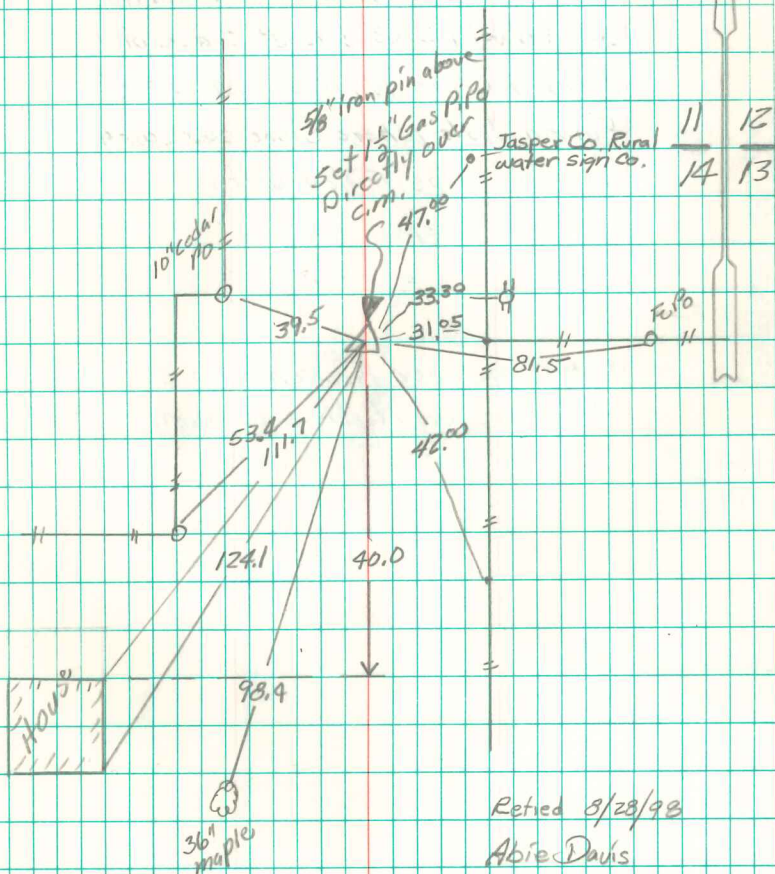 5/8" Iron pin above
Set 1 1/2" Gas Pipe
Directly over
c.m.
Jasper Co. Rural
water sign Co.
11 | 12
14 | 13
47.00
10" cedar
po
33.30
39.5
31.05
Fc. Po
81.5
53.4
111.7
42.00
124.1
40.0
House
98.4
36"
maple
Retied 8/28/98
Abie Davis